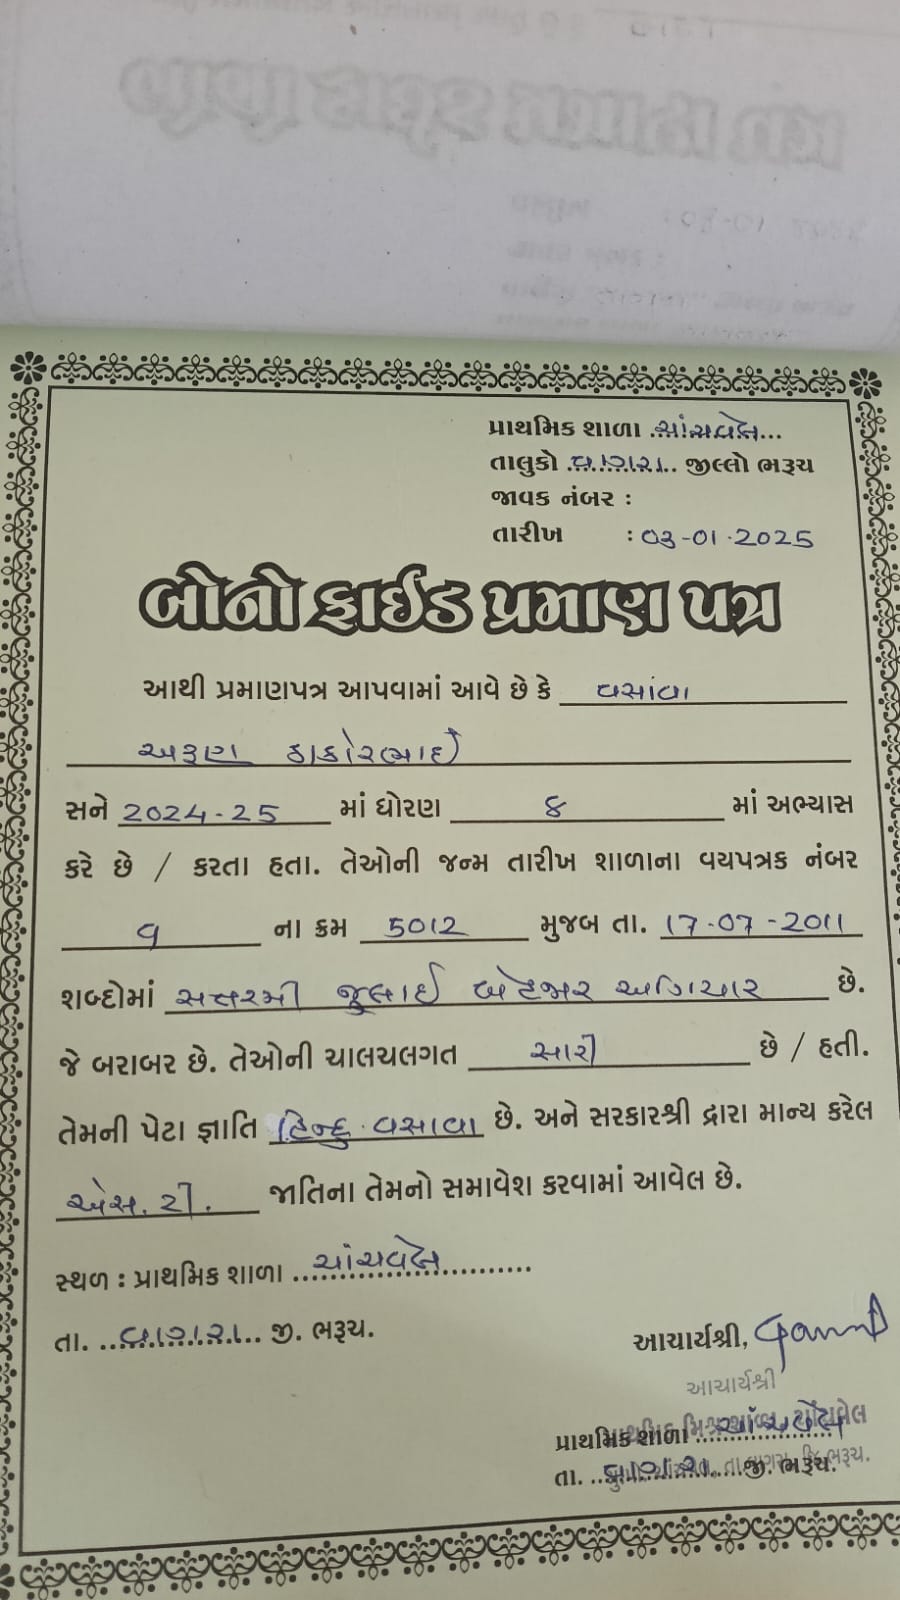 પ્રાથમિક શાળા ચાંચવેલ
તાલુકો વાગરા જીલ્લો ભરૂચ
જાવક નંબર :
તારીખ : 03-01-2025
બોનોફાઈડ પ્રમાણ પત્ર
આથી પ્રમાણપત્ર આપવામાં આવે છે કે વસાવા
અરૂણ ઠાકોરભાઈ
સને 2024-25 માં ધોરણ ૪ માં અભ્યાસ
કરે છે / કરતા હતા. તેઓની જન્મ તારીખ શાળાના વયપત્રક નંબર
૧ ના ક્રમ 5012 મુજબ તા. 17-07-2011
શબ્દોમાં સત્તરમી જુલાઈ બેહજાર અગિયાર છે.
જે બરાબર છે. તેઓની ચાલચલગત સારી છે / હતી.
તેમની પેટા જ્ઞાતિ હિન્દુ વસાવા છે. અને સરકારશ્રી દ્વારા માન્ય કરેલ
એસ. ટી. જાતિના તેમનો સમાવેશ કરવામાં આવેલ છે.
સ્થળ : પ્રાથમિક શાળા ચાંચવેલ
તા. વાગરા જી. ભરૂચ.
આચાર્યશ્રી,
આચાર્યશ્રી
પ્રાથમિક શાળા ચાંચવેલ
તા. વાગરા જી. ભરૂચ.